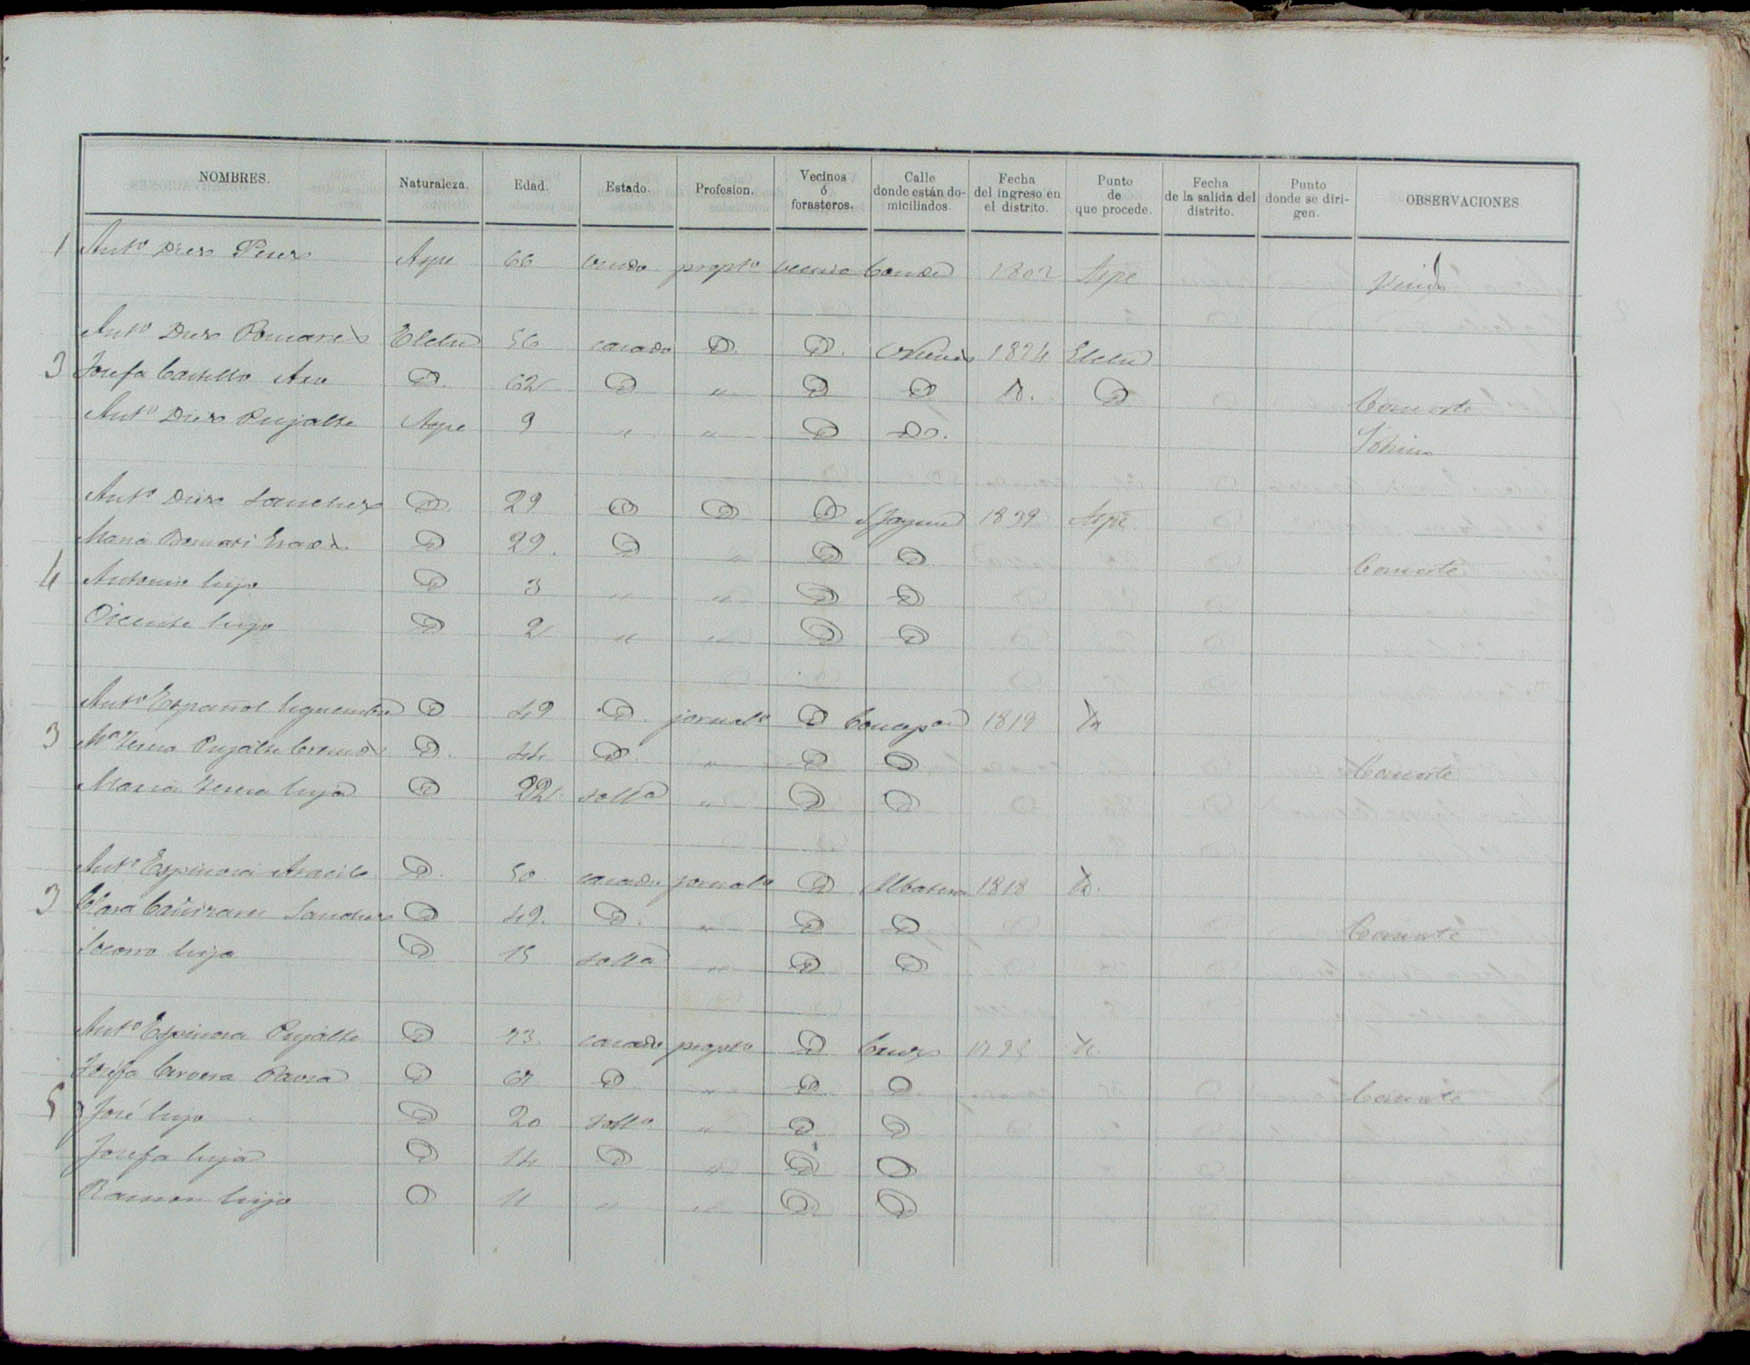 NOMBRES. Naturaleza. Edad. Estado. Profesion. Vecinos ó forasteros. Calle donde están domiciliados. Fecha del ingreso en el distrito. Punto de que procede. Fecha de la salida del distrito. Punto donde se dirigen. OBSERVACIONES
1 Antº Diez Perez Aspe 66 viudo propto vecino Conde 1802 Aspe Viudo
Antº Diez Pomares Elche 56 casado D. D. 1824 Elche
3 Josefa Castillo D. 62 D " D D D. D Consorte
Antº Diez Pujalte Aspe 9 " " D Do.
Antº Diez Sanchez D. 29 D D D S Jayme 1839 Aspe
Maria D 29. D " D D Consorte
4 Antonio hijo D 3 " " D D
Vicente hijo D 2 " " D D
Antº Español D 49 D. jornalo D Concepon 1819 D
3 Mª Teresa Pujalte D. 44 D. " D D Consorte
Maria Teresa hija D 22 solta " D D
Antº Espinosa D. 50 casado jornalo D Albatera 1818 D.
3 Clara Cañizares Sanchez D 49. D. " D D Consorte
Socorro hija D 15 solta " D D
Antº Espinosa Pujalte D 73. casado propto D Cruz D.
Josefa Cervera D 67 D " D D Consorte
5 José hijo D 20 solto " D D
Josefa hija D 14 D " D D
Ramon hijo D 11 " " D D